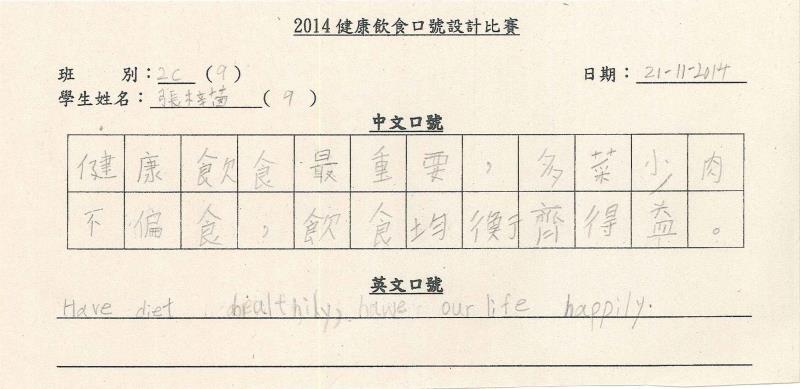 2014健康飲食口號設計比賽
班 別：2C （9） 日期：21-11-2014
學生姓名：張梓茵 （9）
中文口號
健康飲食最重要，多菜少肉
不偏食，飲食均衡齊得益。
英文口號
Have diet healthily, have our life happily.